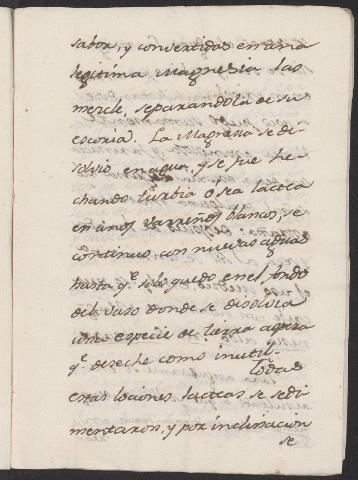 sabor, y convertidas en una
legitima Magnesia las
mercle, separandola de su
escoria. La Magnesia se di-
solvio en agua, y se fue he-
chando turbia o sea lactea
en unos varreños blancos, se
continuo con nuevas aguas
hasta q.e solo quedo en el fondo
del vaso donde se disolvia
una especie de tierra aspera
q.e deseche como inutil.
Todas
estas lociones lacteas se sedi-
mentaron, y por inclinacion
se